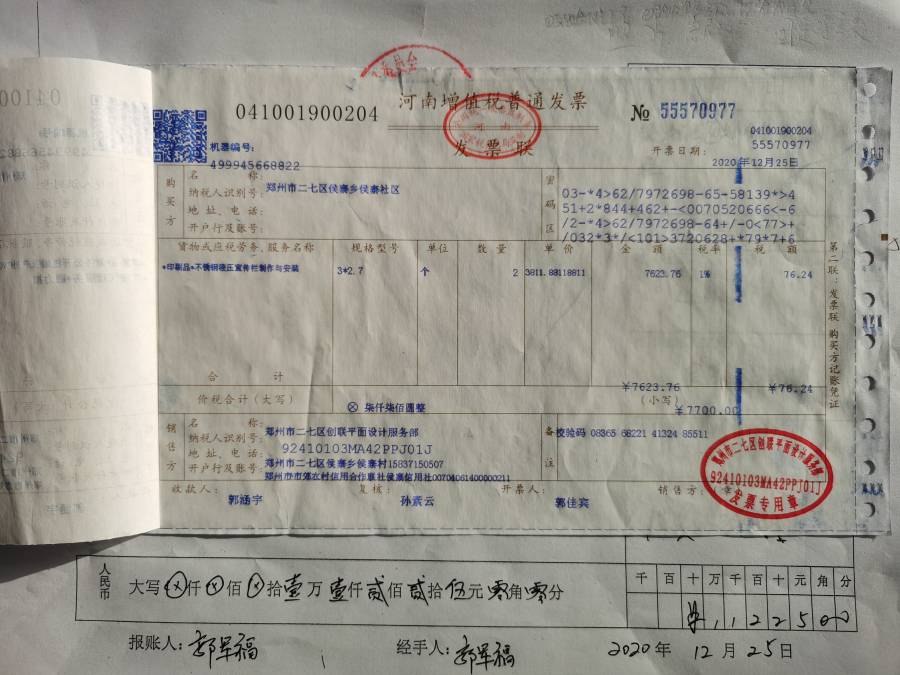 河南增值税普通发票
041001900204
№ 55570977
发票联
041001900204
55570977
机器编号:
499945668822
开票日期:
2020年12月25日
购买方
名 称:
郑州市二七区侯寨乡侯寨社区
纳税人识别号:
地 址、电 话:
开户行及账号:
密码区
03-*4>62/7972698-65-58139*>4
51+2*844+462+-<0070520666<-6
/2-*4>63/7972698-64+/-0<77>+
/032*3*/<101>3720628+*79*7+6
货物或应税劳务、服务名称 规格型号 单位 数 量 单 价 金 额 税率 税 额
*印刷品*不锈钢液压宣传栏制作与安装 3*2.7 个 2 3811.88118811 7623.76 1% 76.24
合 计 ¥7623.76 ¥76.24
价税合计(大写) ⊗ 柒仟柒佰圆整 (小写) ¥7700.00
销售方
名 称:
郑州市二七区创联平面设计服务部
纳税人识别号:
92410103MA42PPJ01J
地 址、电 话:
郑州市二七区侯寨乡侯寨村15837150507
开户行及账号:
郑州市市郊农村信用合作联社侯寨信用社00704061400000211
备注
校验码 08365 68221 41324 85511
收款人: 郭涵宇 复核: 孙素云 开票人: 郭佳宾 销售方:(章)
郑州市二七区创联平面设计服务部
92410103MA42PPJ01J
发票专用章
第二联:发票联 购买方记账凭证
人民币
大写ⓧ仟ⓧ佰ⓧ拾壹万壹仟贰佰贰拾伍元零角零分
千 百 十 万 千 百 十 元 角 分
¥ 1 1 2 2 5 0 0
报账人: 郭军福 经手人: 郭军福 2020年 12月 25日